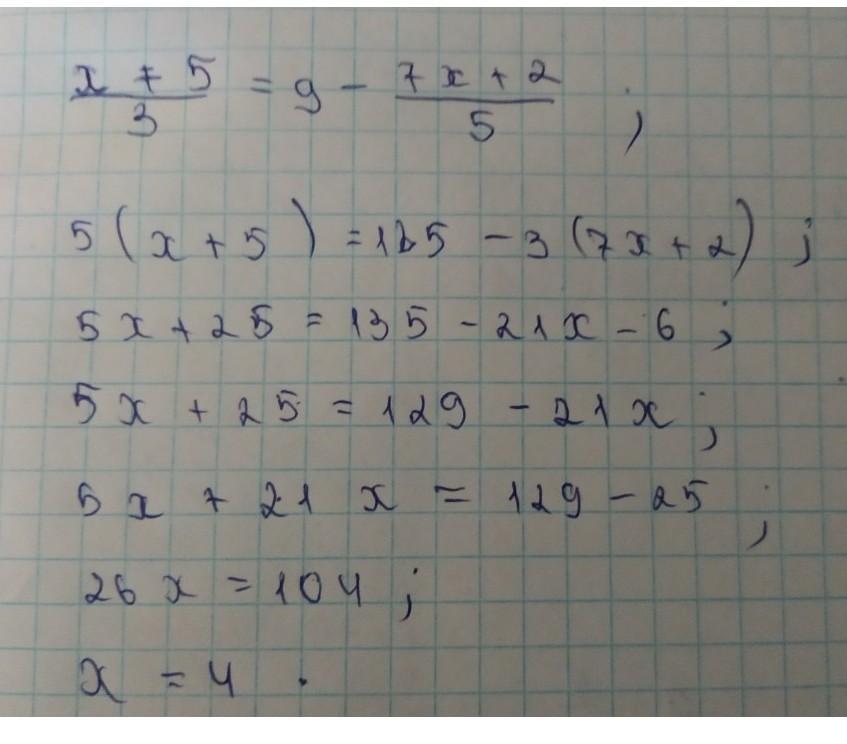 (x + 5)/3 = 9 - (7x + 2)/5 ;
5(x + 5) = 135 - 3(7x + 2) ;
5x + 25 = 135 - 21x - 6 ;
5x + 25 = 129 - 21x ;
5x + 21x = 129 - 25 ;
26x = 104 ;
x = 4 .